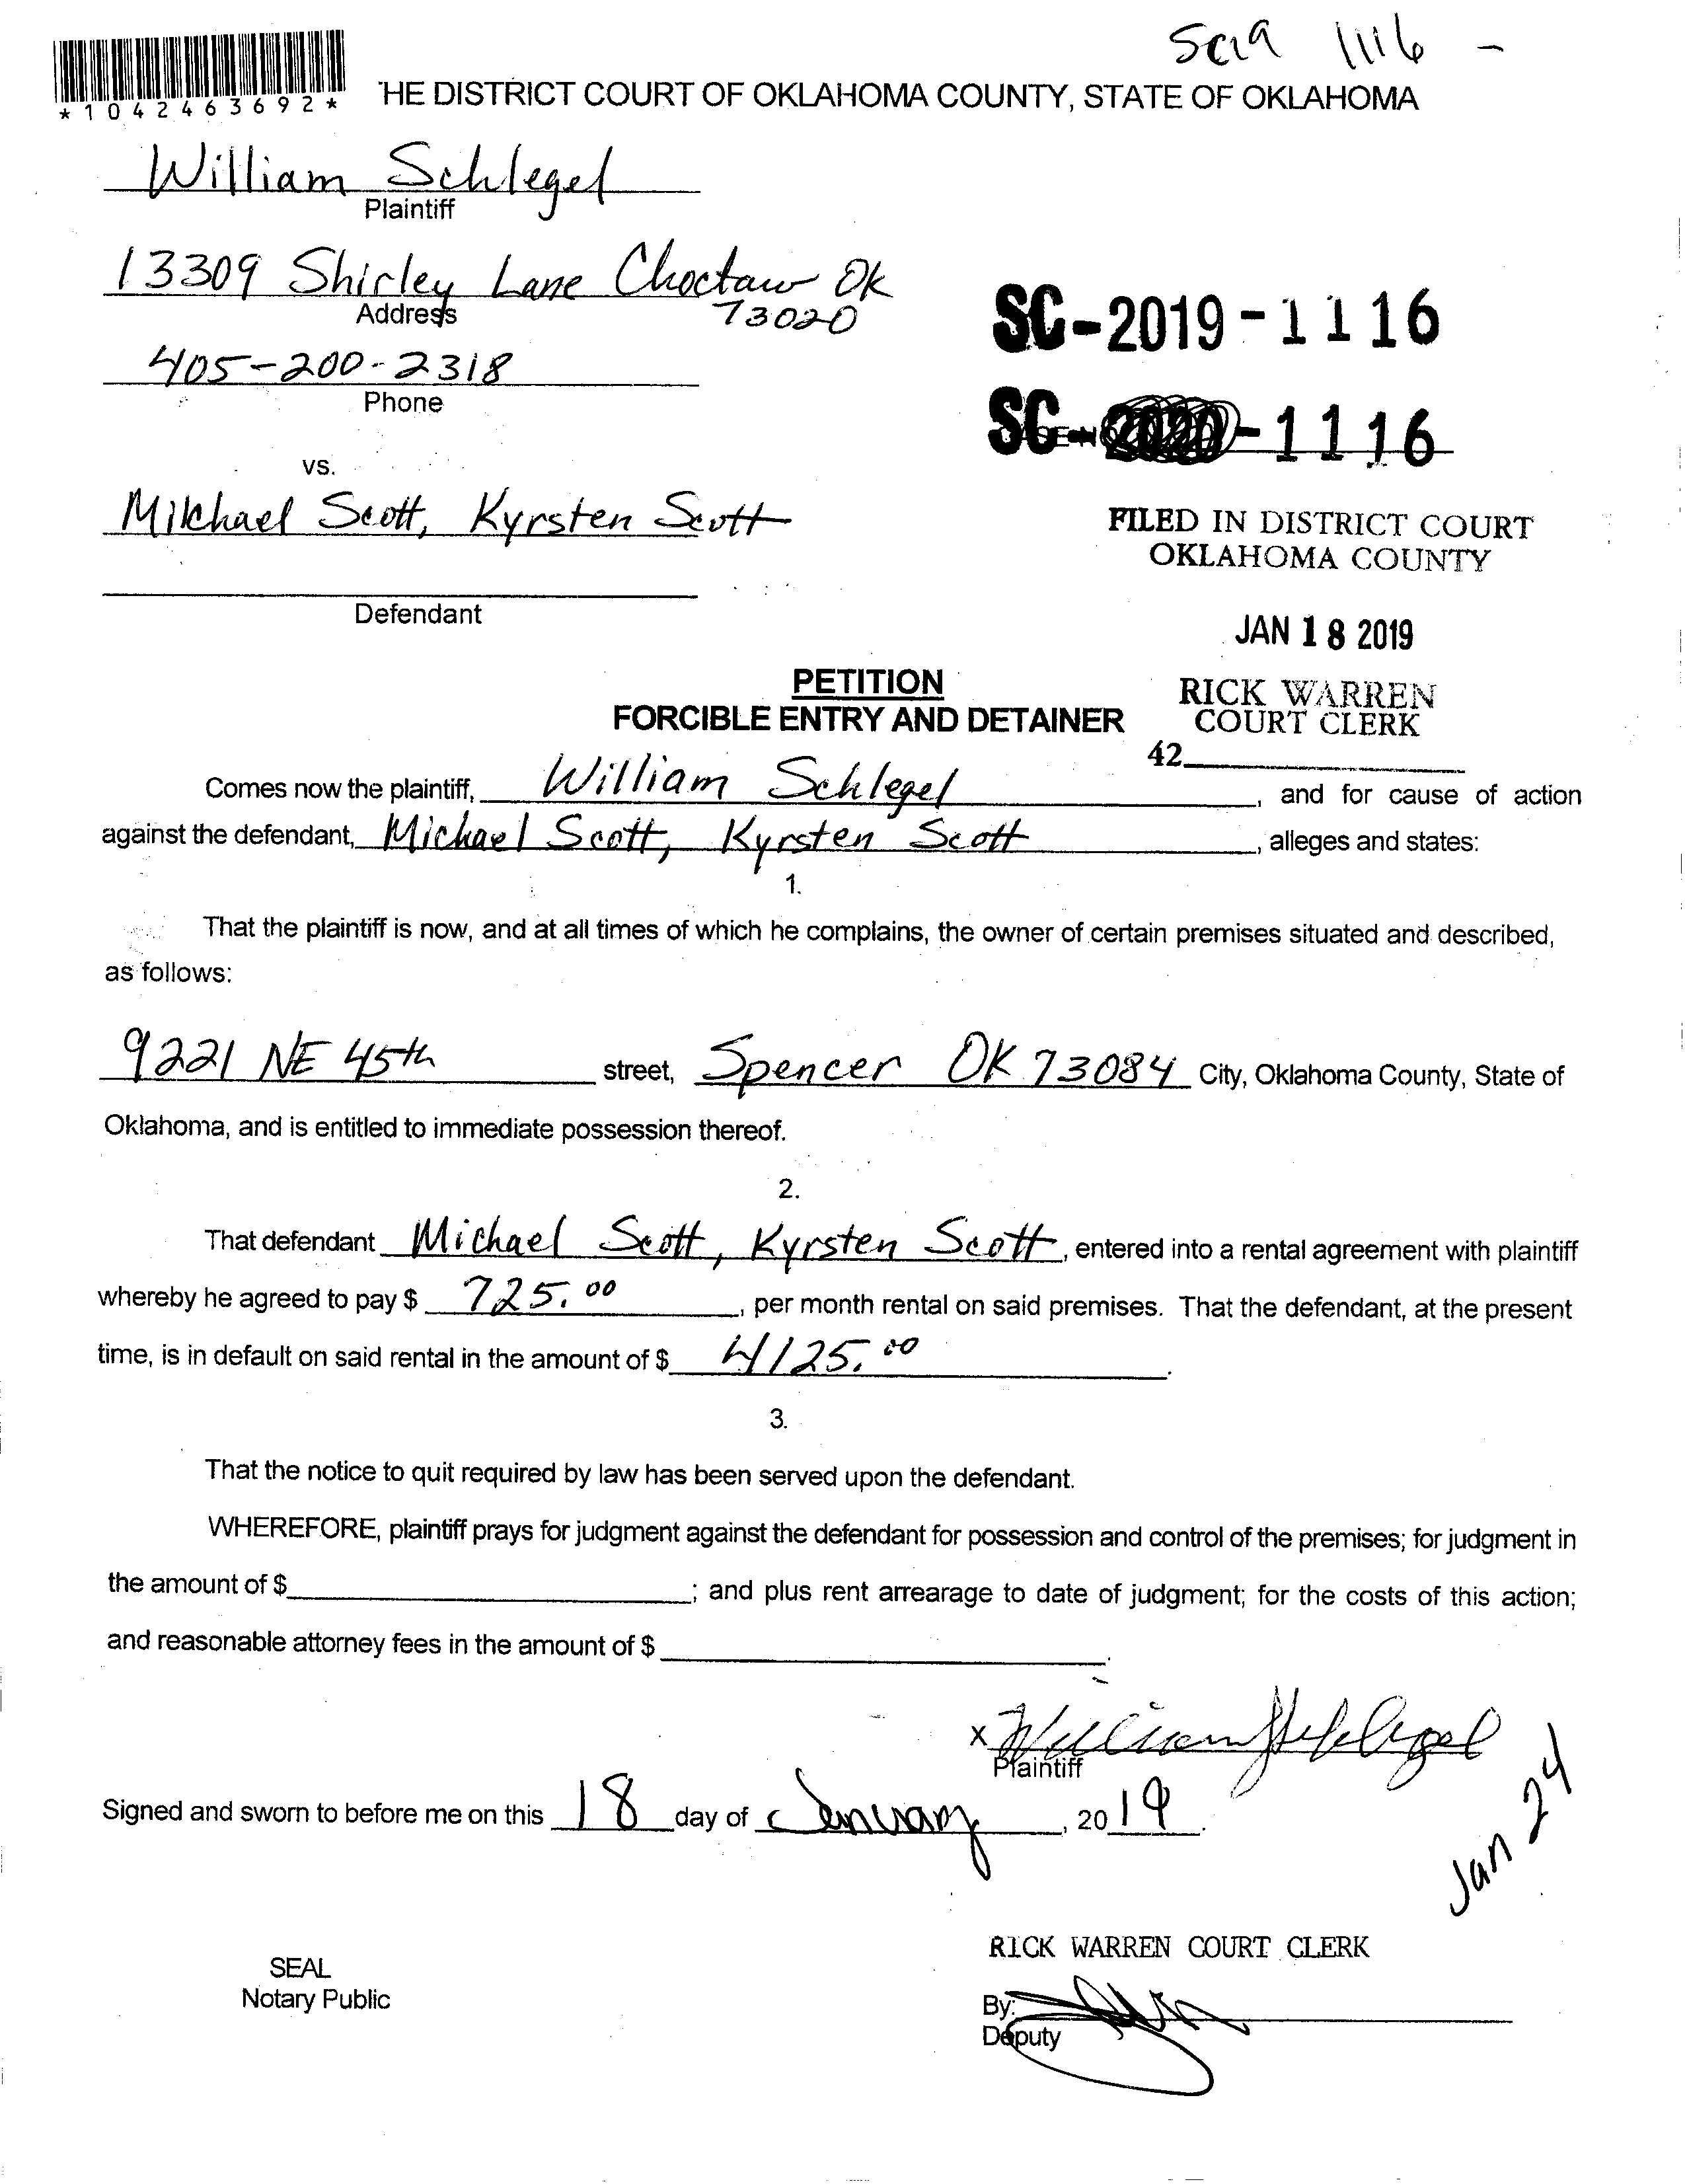 SC19 1116 -
*1042463692*
HE DISTRICT COURT OF OKLAHOMA COUNTY, STATE OF OKLAHOMA
William Schlegel
Plaintiff
13309 Shirley Lane Choctaw Ok
Address 73020
405-200-2318
Phone
SC-2019-1116
SC-2020-1116
vs.
Mikhael Scott, Kyrsten Scott
Defendant
FILED IN DISTRICT COURT
OKLAHOMA COUNTY
JAN 18 2019
RICK WARREN
COURT CLERK
42
PETITION
FORCIBLE ENTRY AND DETAINER
Comes now the plaintiff, William Schlegel, and for cause of action
against the defendant, Michael Scott, Kyrsten Scott, alleges and states:
1.
That the plaintiff is now, and at all times of which he complains, the owner of certain premises situated and described,
as follows:
9221 NE 45th street, Spencer OK 73084 City, Oklahoma County, State of
Oklahoma, and is entitled to immediate possession thereof.
2.
That defendant Michael Scott, Kyrsten Scott, entered into a rental agreement with plaintiff
whereby he agreed to pay $ 725.00, per month rental on said premises. That the defendant, at the present
time, is in default on said rental in the amount of $ 4125.00.
3.
That the notice to quit required by law has been served upon the defendant.
WHEREFORE, plaintiff prays for judgment against the defendant for possession and control of the premises; for judgment in
the amount of $ ; and plus rent arrearage to date of judgment; for the costs of this action;
and reasonable attorney fees in the amount of $ .
x William Schlegel
Plaintiff
Signed and sworn to before me on this 18 day of January, 2019.
Jan 24
SEAL
Notary Public
RICK WARREN COURT CLERK
By:
Deputy